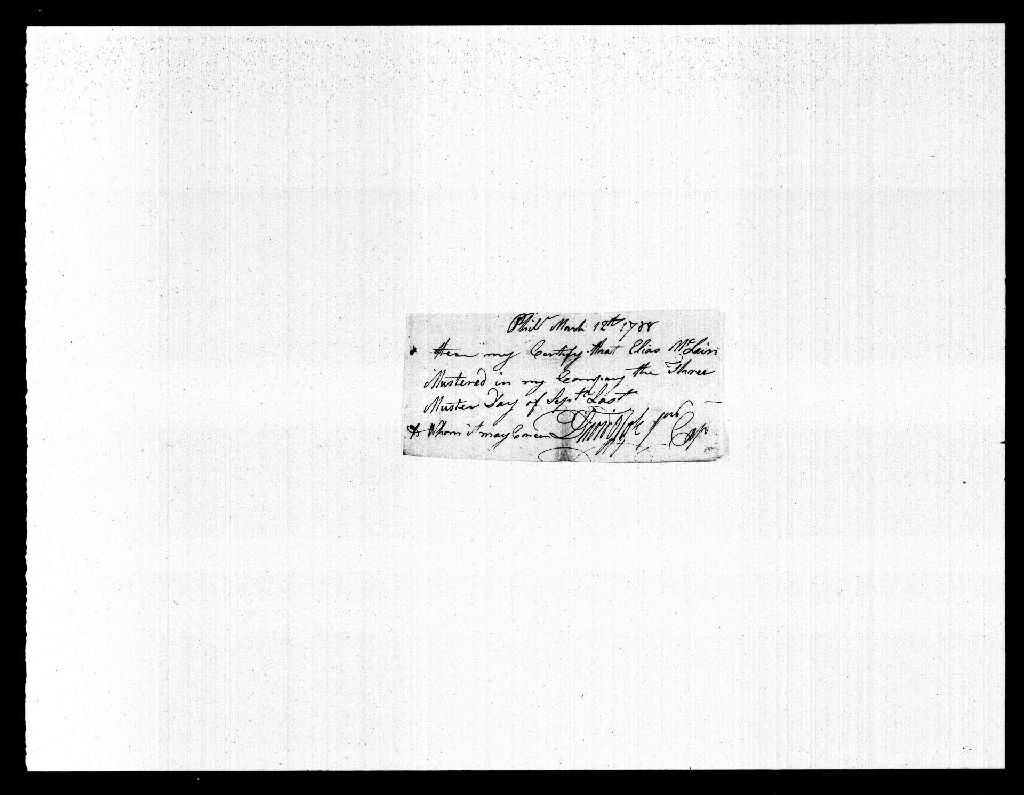 Phila March 12th 1788
my Certify that Elias McLain
Mustered in my Company the Three
Muster Day of Septr Last
To Whom it may Concern Cap